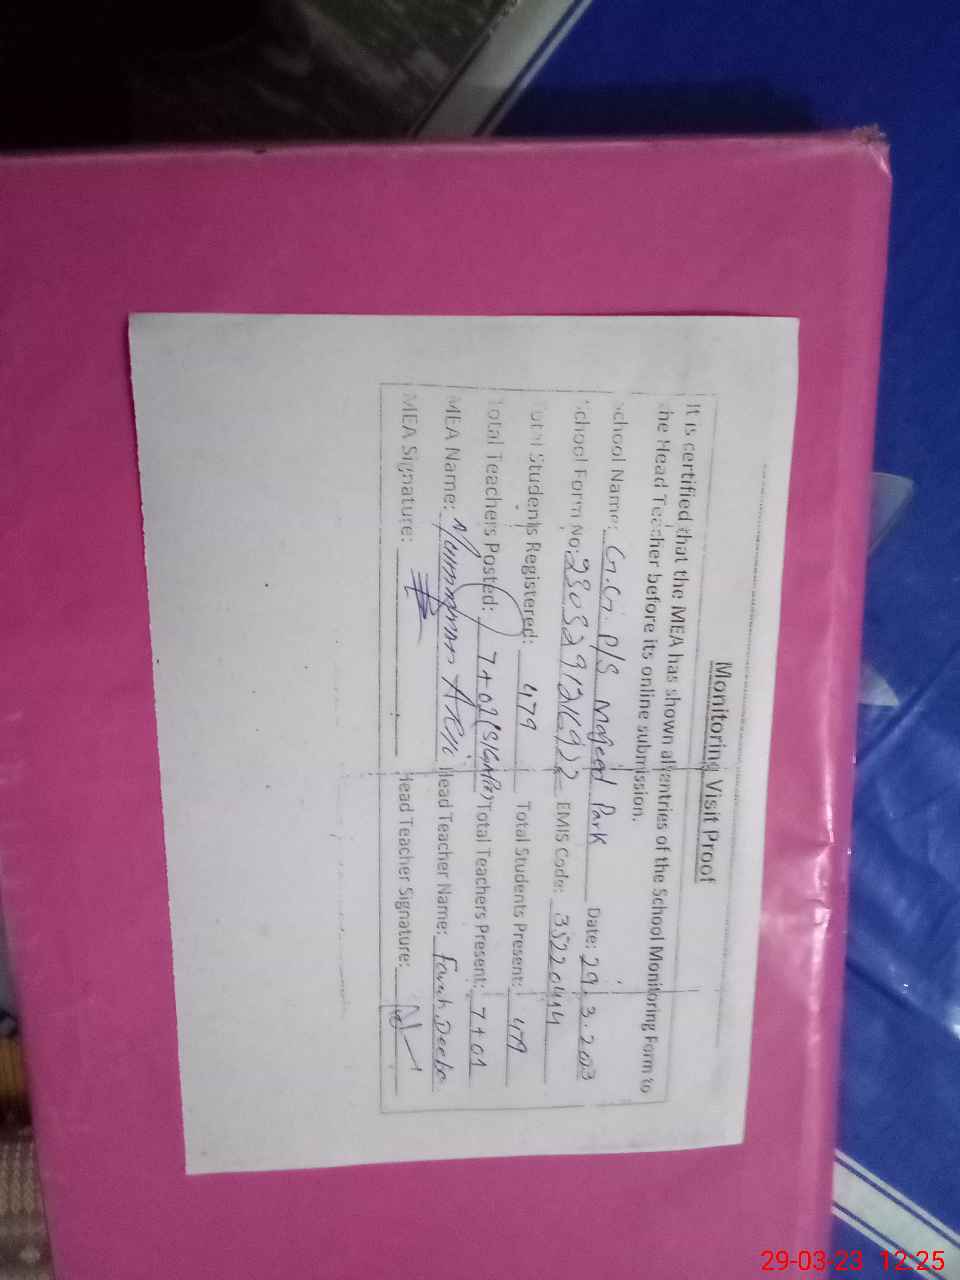 Monitoring Visit Proof
It is certified that the MEA has shown all entries of the School Monitoring Form to
the Head Teacher before its online submission.
School Name: G.G. P/S Majeed Park Date: 29.3.2023
School Form No: EMIS Code: 35220414
Total Students Registered: 479 Total Students Present: 479
Total Teachers Posted: 7+01 Total Teachers Present: 7+01
MEA Name: Head Teacher Name: Farah Deeba
MEA Signature: Head Teacher Signature:
29-03-23 12:25